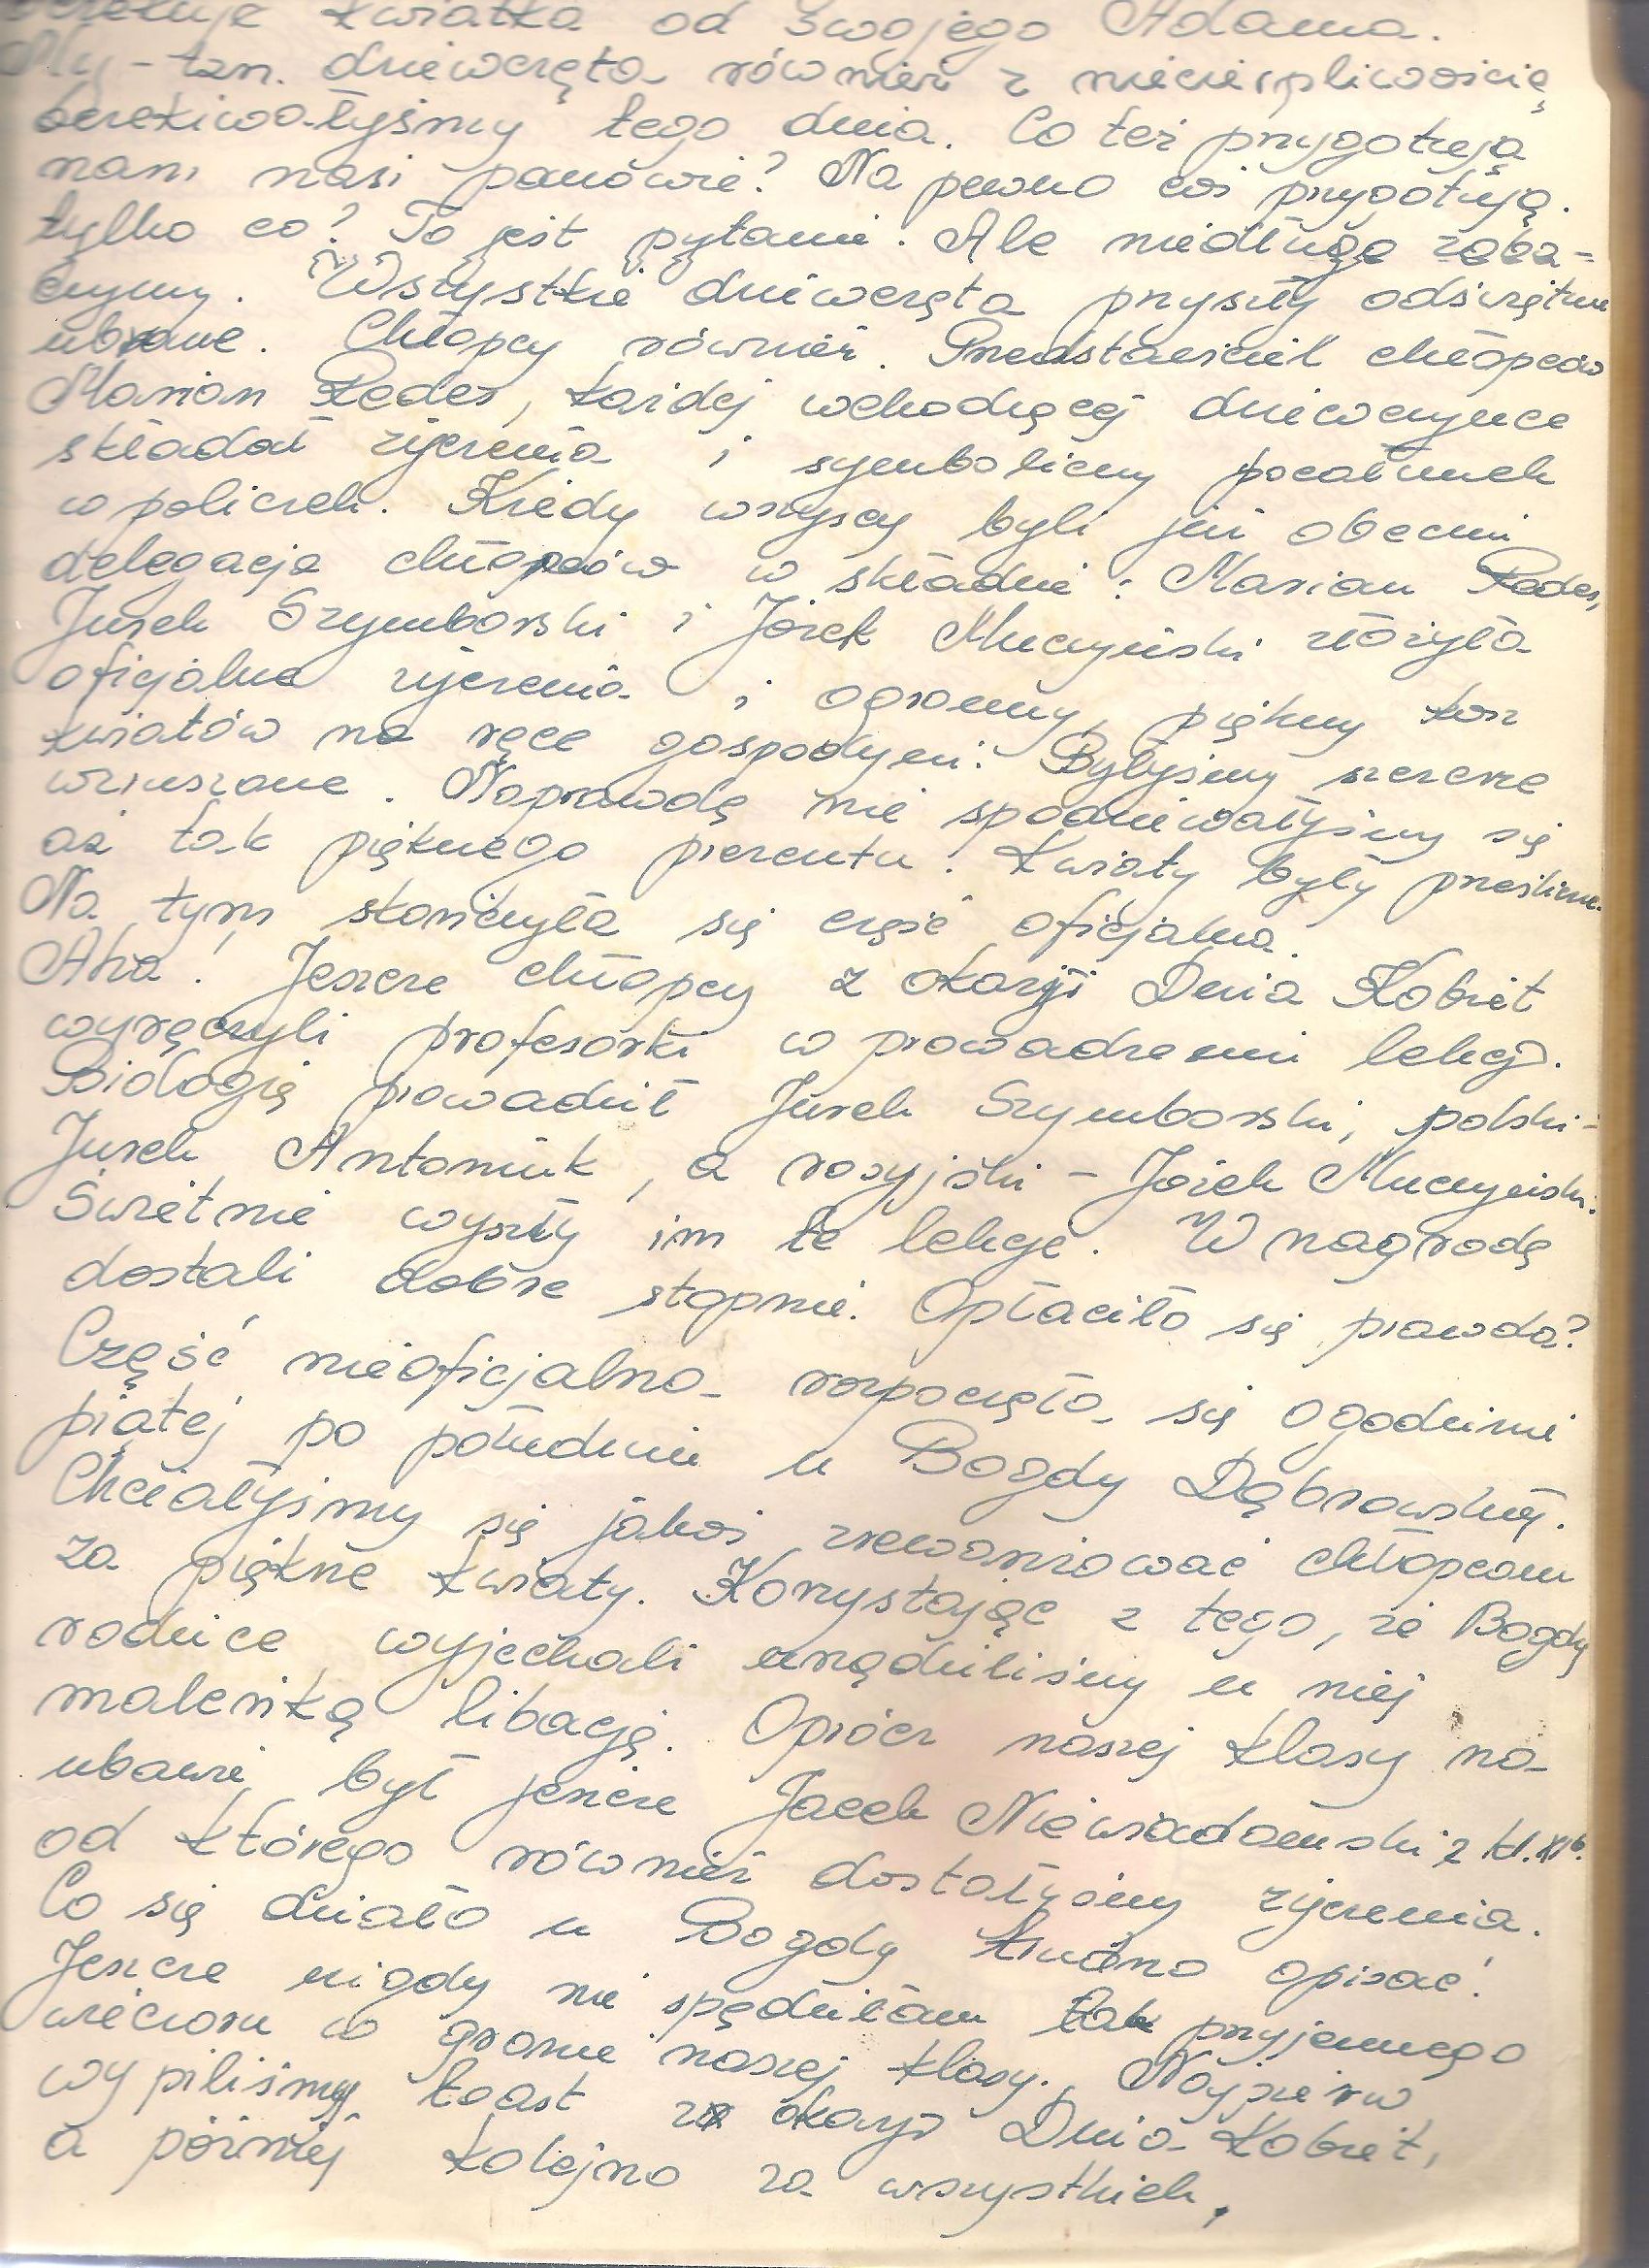 kwiatka od swojego Adama.
My - tzn. dziewczęta również z niecierpliwością
oczekiwałyśmy tego dnia. Co też przygotują
nam nasi panowie? Na pewno coś przygotują.
tylko co? To jest pytanie. Ale niedługo zoba-
czymy. Wszystkie dziewczęta przyszły odświętnie
ubrane. Chłopcy również. Przedstawiciel chłopców
Marian Redes, każdej wchodzącej dziewczynce
składał życzenia i symboliczny pocałunek
w policzek. Kiedy wszyscy byli już obecni
delegacja chłopców w składzie: Marian Redes,
Jurek Szymborski i Józek Muczyński złożyła
oficjalne życzenia i ogromny, piękny kosz
kwiatów na ręce gospodyni. Byłyśmy szczerze
wzruszone. Naprawdę nie spodziewałyśmy się
aż tak pięknego prezentu. Kwiaty były prześliczne.
Na tym skończyła się część oficjalna.
Aha! Jeszcze chłopcy z okazji Dnia Kobiet
wyręczyli profesorki w prowadzeniu lekcji.
Biologię prowadził Jurek Szymborski, polski -
Jurek Antoniuk, a rosyjski - Józek Muczyński.
Świetnie wyszły im te lekcje. W nagrodę
dostali dobre stopnie. Opłaciło się prawda?
Część nieoficjalna rozpoczęła się o godzinie
piątej po południu u Bogdy Dąbrowskiej.
Chciałyśmy się jakoś zrewanżować chłopcom
za piękne kwiaty. Korzystając z tego, że Bogdy
rodzice wyjechali urządziliśmy u niej
maleńką libację. Oprócz naszej klasy na
ubawie był jeszcze Jacek Niewiadomski z kl. XIb.
od którego również dostałyśmy życzenia.
Co się działo u Bogdy trudno opisać!
Jeszcze nigdy nie spędziłam tak przyjemnego
wieczoru w gronie naszej klasy. Najpierw
wypiliśmy toast z okazji Dnia Kobiet,
a później kolejno za wszystkich,